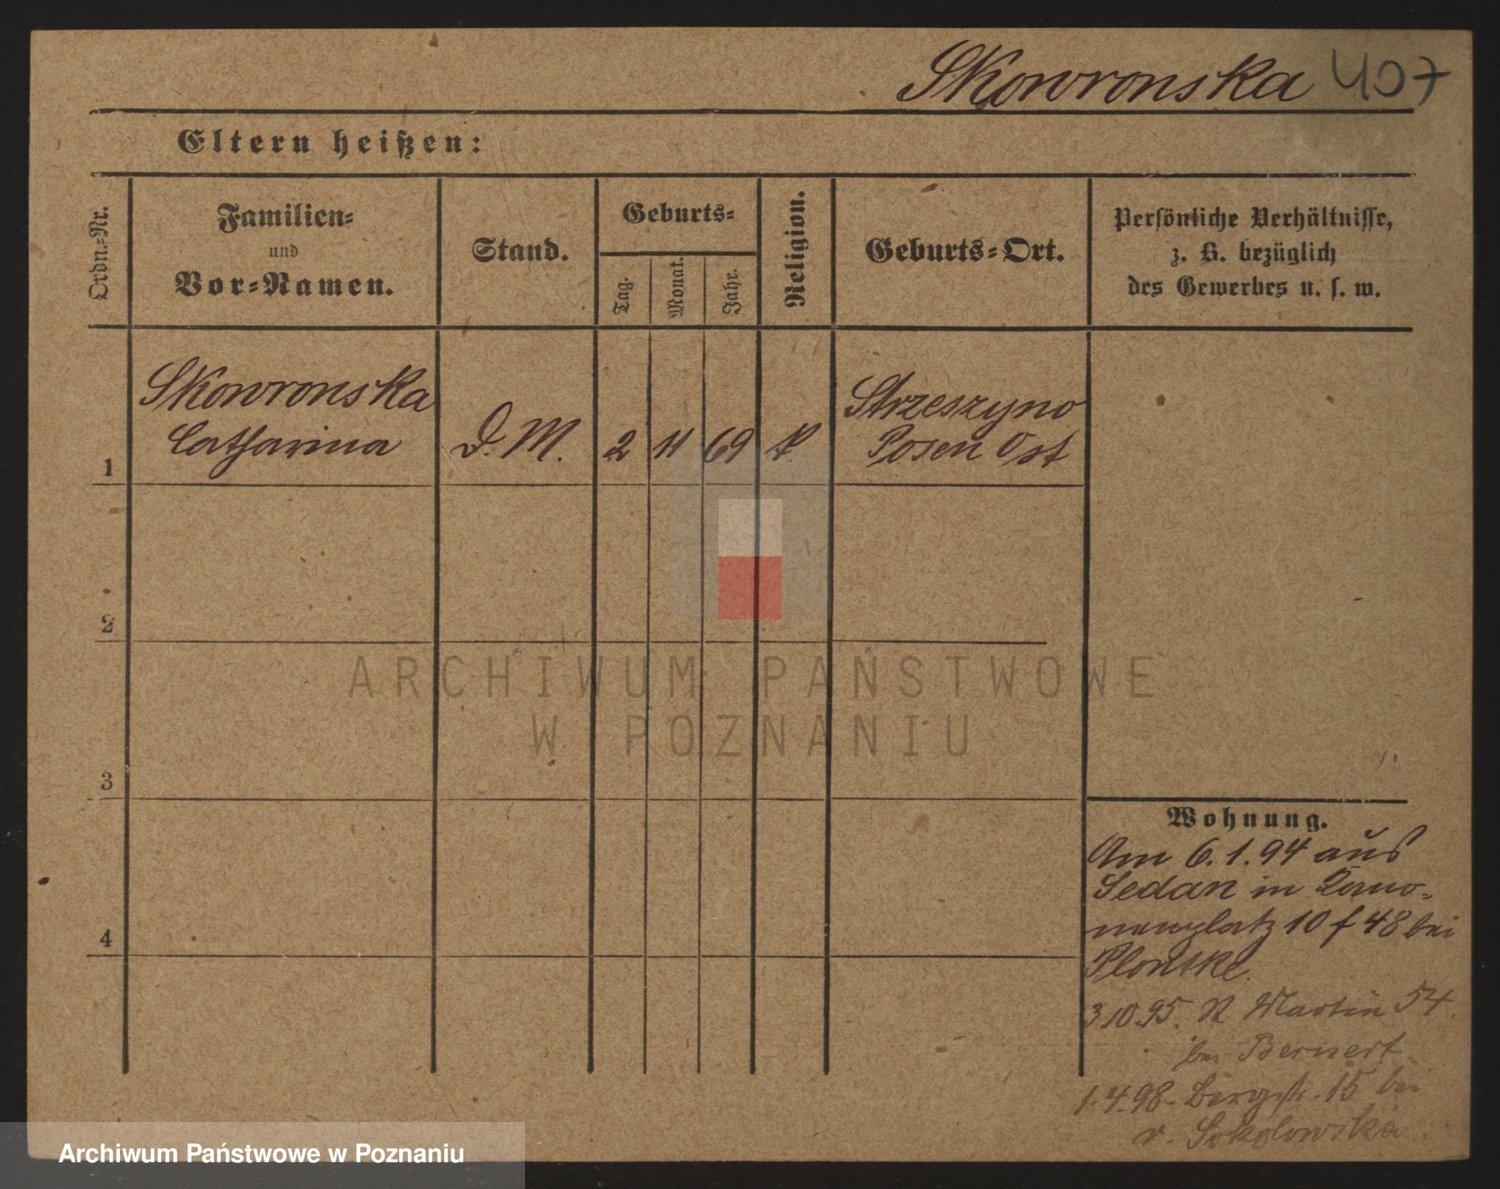 Skowronska 407
Eltern heißen:
Ordn.-Nr.
Familien-
und
Vor-Namen.
Stand.
Geburts-
Tag.
Monat.
Jahr.
Religion.
Geburts-Ort.
Persönliche Verhältnisse,
z. B. bezüglich
des Gewerbes u. s. w.
1
Skowronska
Catharina
D. M.
2
11
69
K.
Strzeszyno
Posen Ost
2
3
4
Wohnung.
Am 6.1.94 aus
Sedan in Kano-
nenplatz 10 f 48 bei
Plontke.
3.10.95. St Martin 54.
bei Bernert
1.4.98. Bergstr. 15 bei
v. Sokolowska
ARCHIWUM PAŃSTWOWE
W POZNANIU
Archiwum Państwowe w Poznaniu